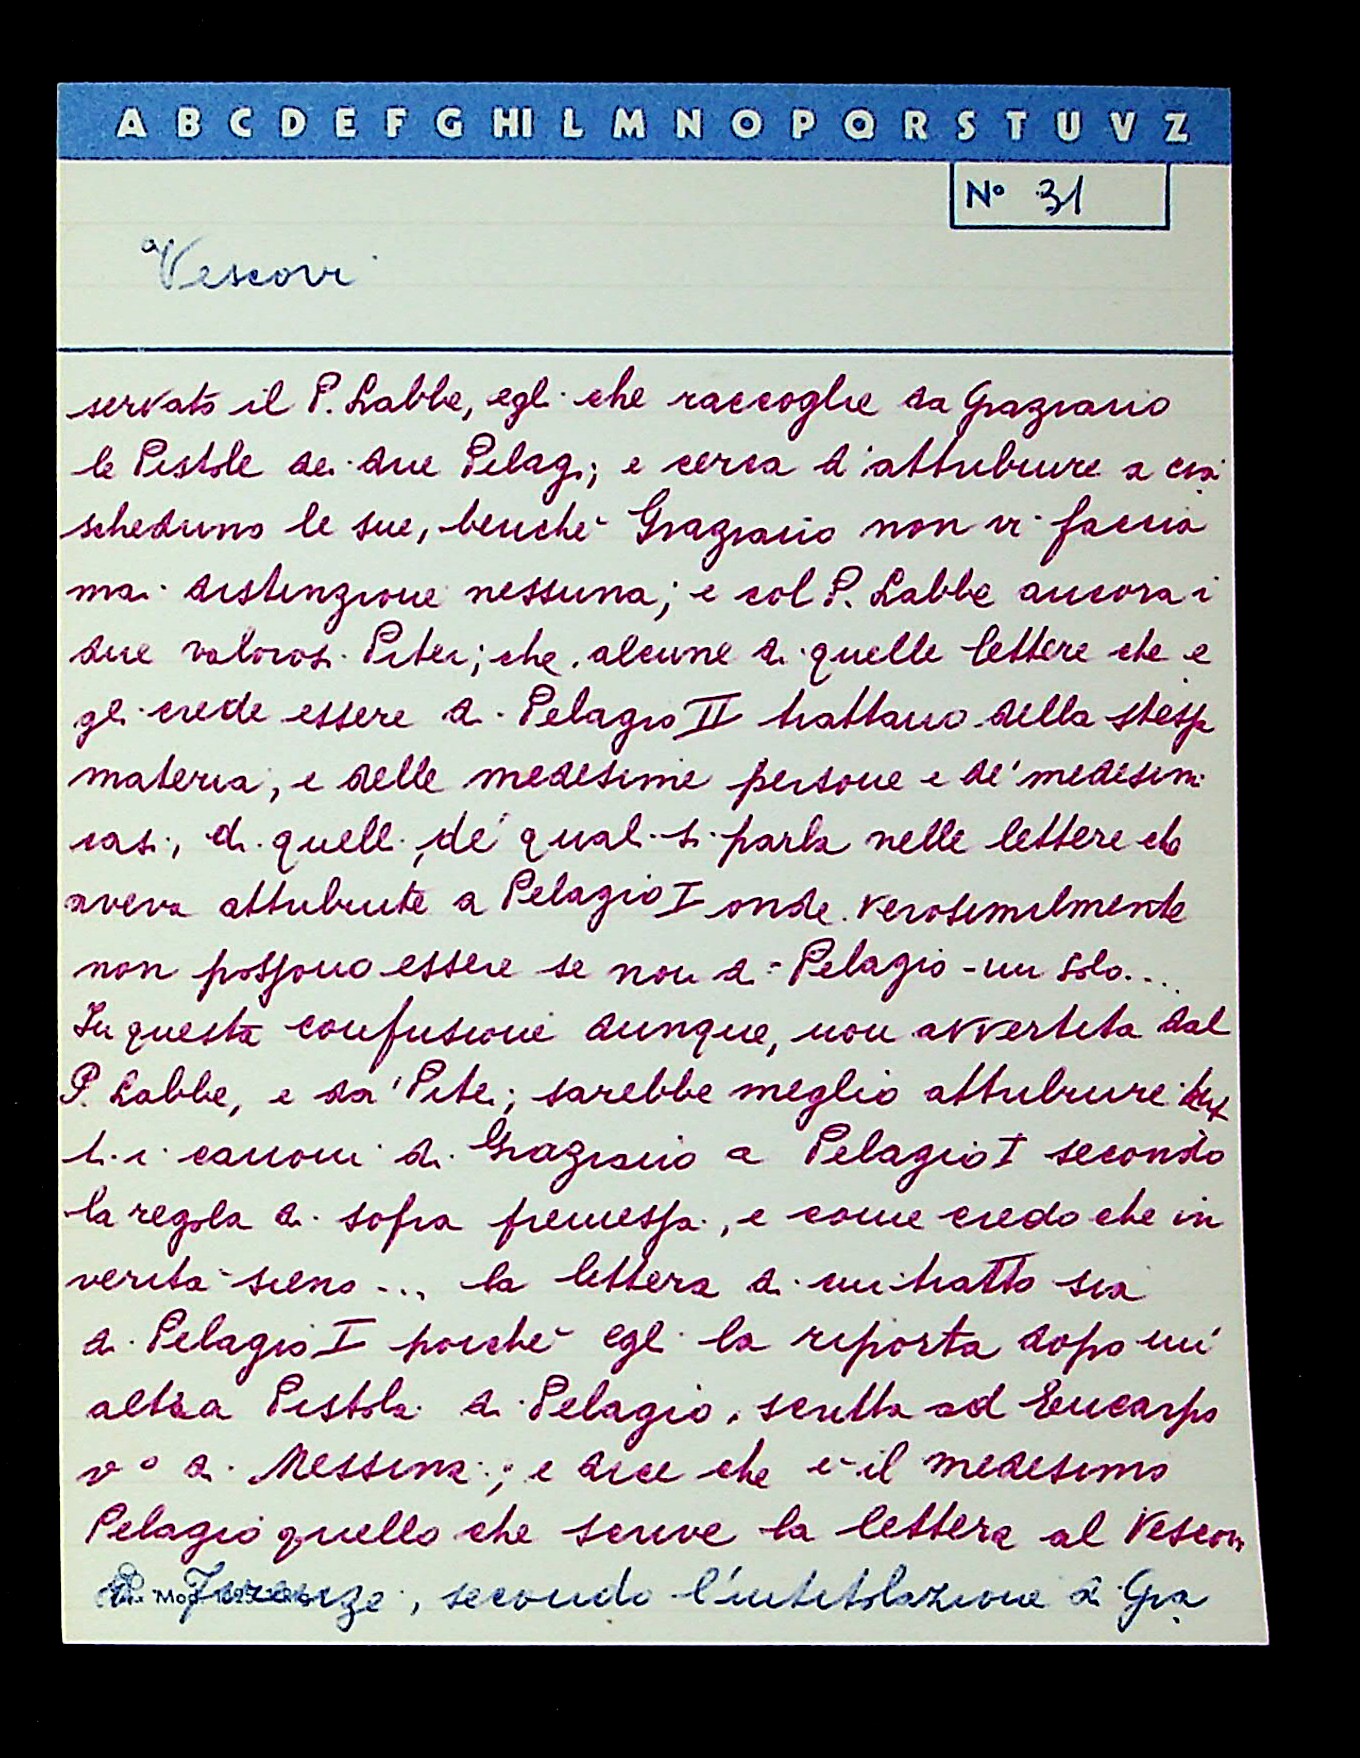 A B C D E F G HI L M N O P Q R S T U V Z
Nº 31
Vescovi
servato il P. Labbe, egli che raccoglie da Graziano
le Pistole dei due Pelagi; e cerca d'attribuire a cia
scheduno le sue, benchè Graziano non vi faccia
mai distinzione nessuna; e col P. Labbe ancora i
due valorosi Pitei; che alcune di quelle lettere che e
gli crede essere di Pelagio II trattano della stessa
materia, e delle medesime persone e de' medesimi
casi, di quelli, de' quali si parla nelle lettere che
aveva attribuite a Pelagio I onde verosimilmente
non possono essere se non di - Pelagio - un solo....
In questa confusione dunque, non avvertita dal
P. Labbe, e da' Pitei; sarebbe meglio attribuire tut
ti i canoni di Graziano a Pelagio I secondo
la regola di sopra premessa, e come credo che in
verità sieno ... la lettera di cui tratto sia
di Pelagio I poichè egli la riporta dopo un'
altra Pistola di Pelagio, scritta ad Eucarpo
vº di Messina; e dice che è il medesimo
Pelagio quello che scrive la lettera al Vescovo
di Firenze, secondo l'intitolazione di Gra